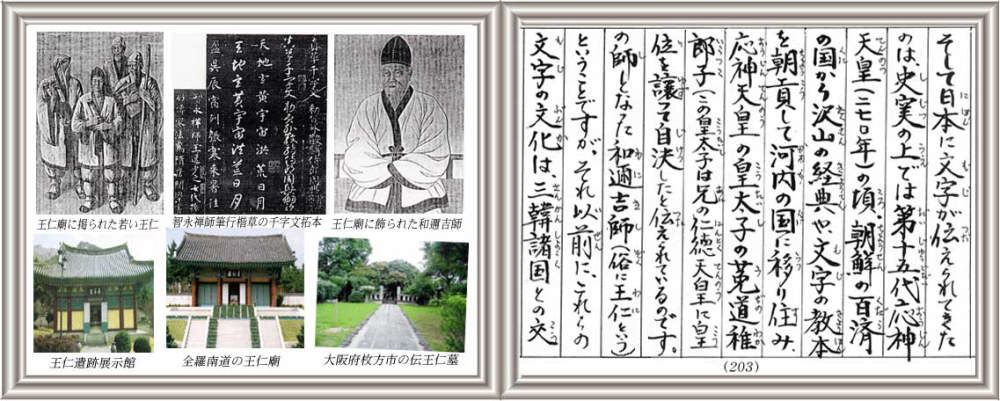 王仁廟に掲られた若い王仁
智永禅師筆行楷草の千字文拓本
王仁廟に飾られた和邇吉師
天地玄黄宇宙洪荒日月
天地玄黄宇宙洪荒日月
盈昃辰宿列張寒来暑往
王仁遺跡展示館
全羅南道の王仁廟
大阪府枚方市の伝王仁墓
そして日本に文字が伝えられてきた
のは、史実の上では第十五代応神
天皇(二七〇年)の頃、朝鮮の百済
の国から沢山の経典や文字の教本
を朝貢して河内の国に移り住み、
応神天皇の皇太子の菟道稚
郎子(この皇太子は兄の仁徳天皇に皇
位を譲って自決したと伝えられているのです。
の師しなった和邇吉師(俗に王仁という)
ということですが、それ以前に、これらの
文字の文化は、三韓諸国との交
(203)